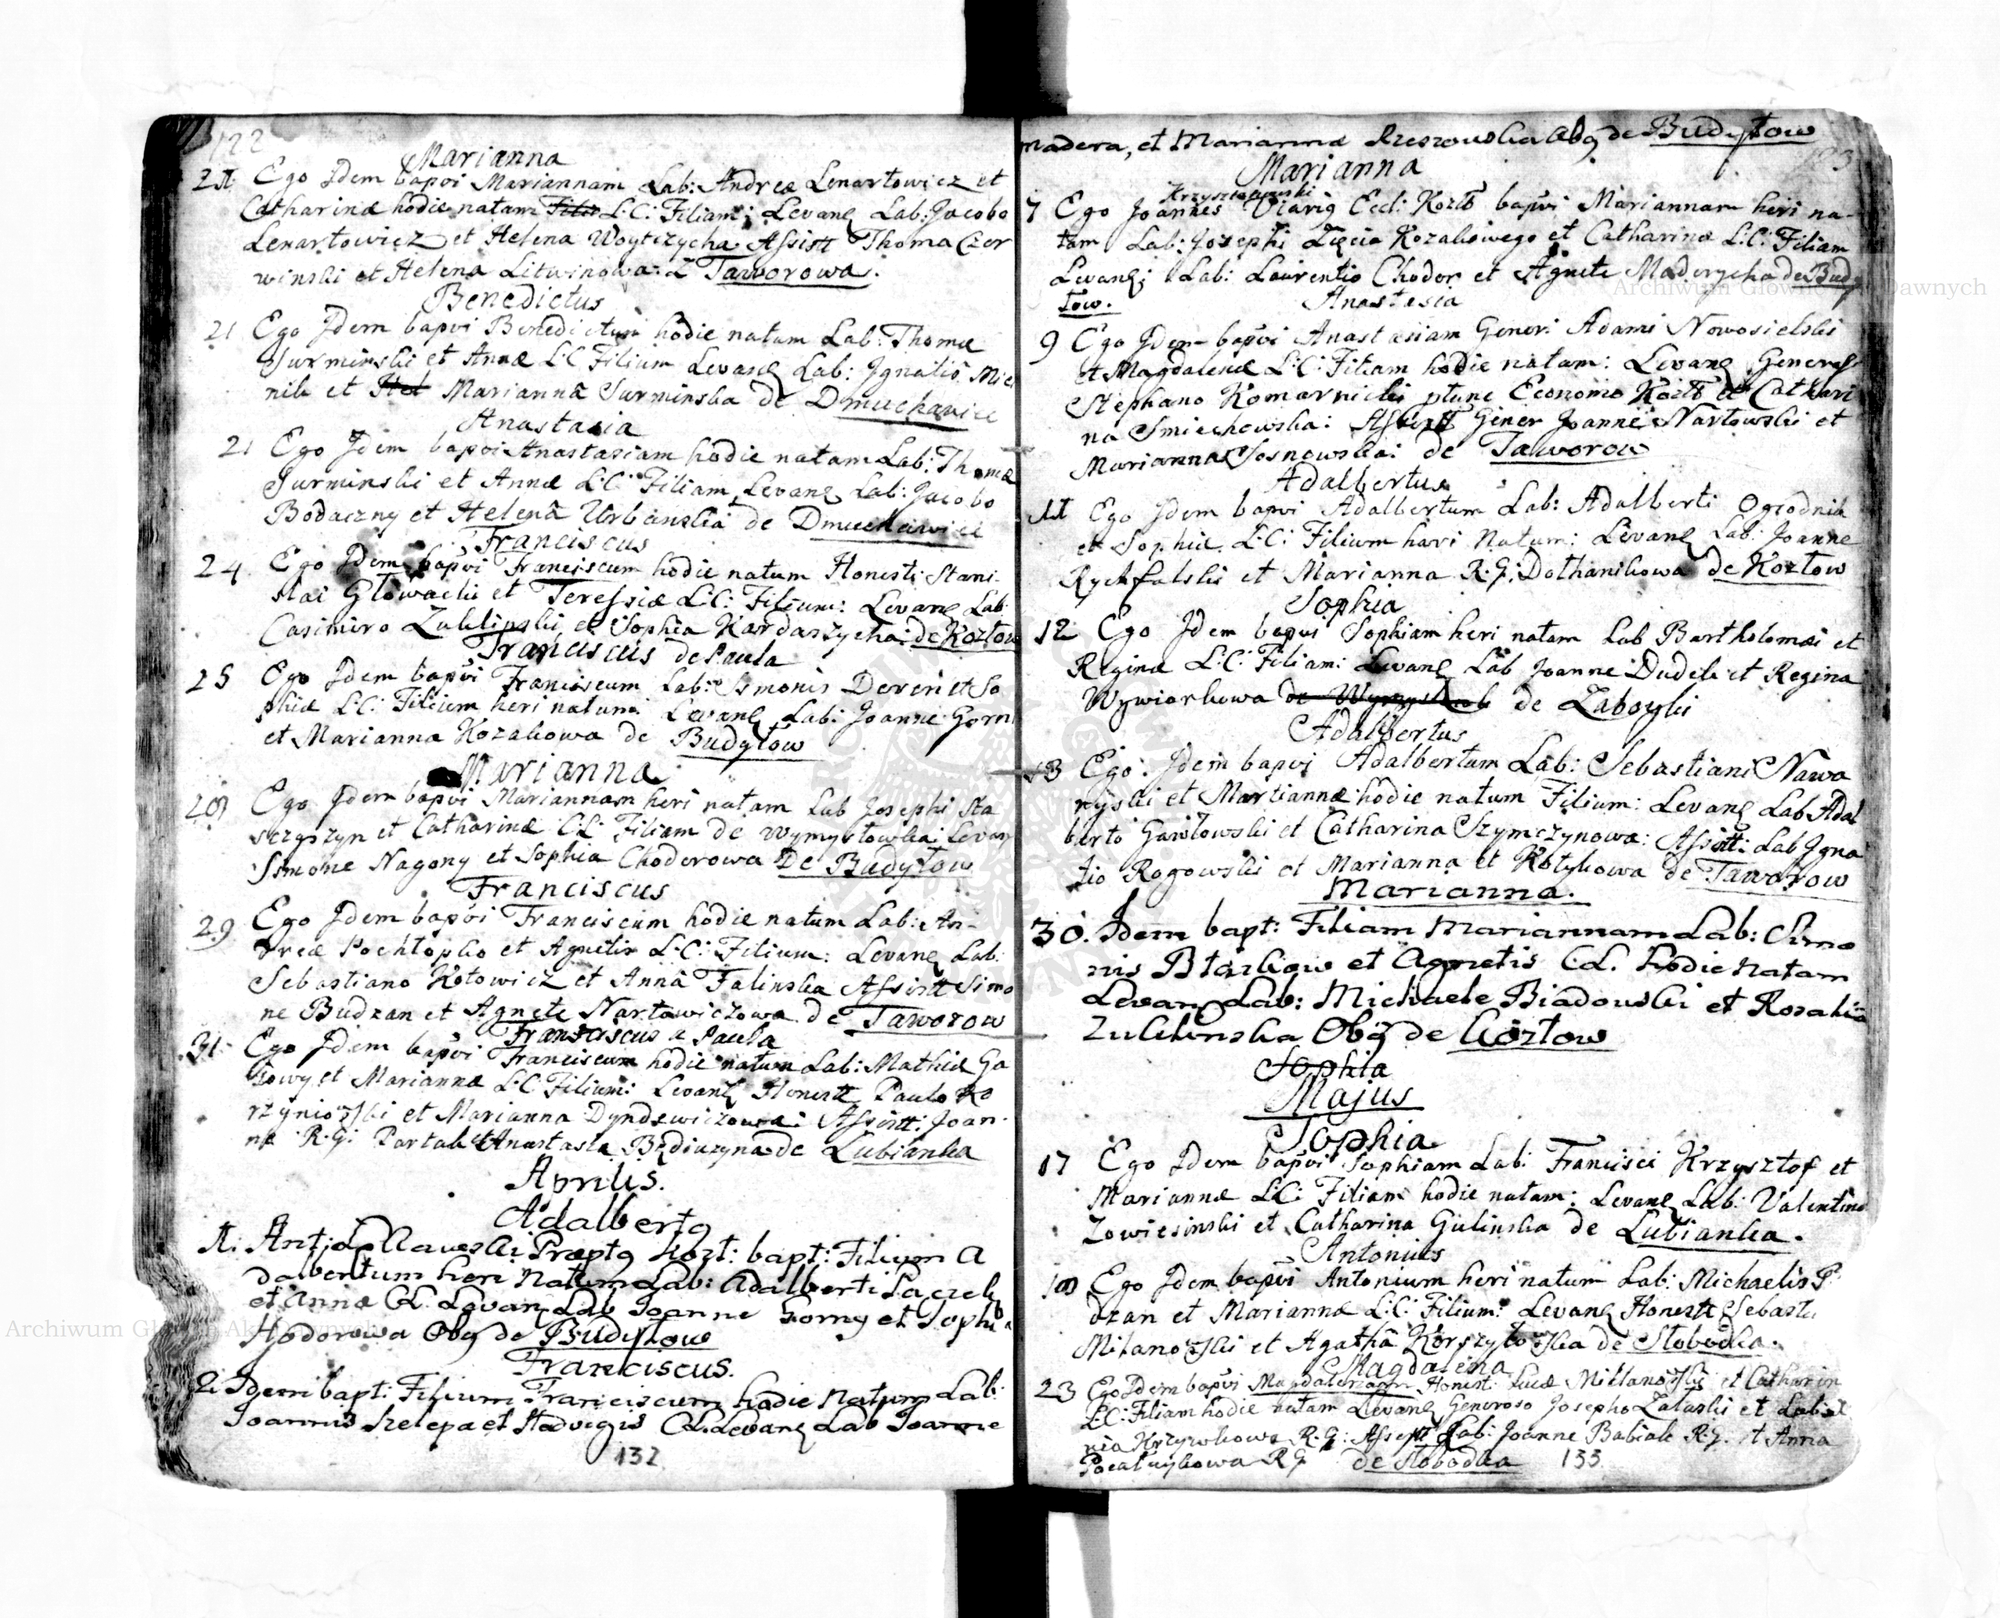 122
Marianna
21 Ego Idem bapvi Mariannam Lab: Andreæ Lenartowicz et
Catharinæ hodie natam L:C: Filiam; Levanę Lab: Jacobo
Lenartowicz et Helena Woytczycha Assistt Thoma Czer
winski et Helena Litwinowa: Taworowa.
Benedictus
21 Ego Idem bapvi Benedictum hodie natum Lab: Thomæ
Surminski et Annæ L:C Filium Levanę Lab: Ignatio Mic
nik et Marianna Surminska de Dmuchawice
Anastasia
21 Ego Idem bapvi Anastasiam hodie natam Lab: Thomæ
Surminski et Annæ L:C: Filiam Levanę Lab: Jacobo
Bodaczny et Helenâ Urbanska de Dmuchawice
Franciscus
24 Ego Idem bapvi Franciscum hodie natum Honesti Stani-
slai Głowacki et Teressiæ L:C: Filium: Levanę Lab:
Casimiro Zuklinski et Sophia Kardaszycha: de Kozłow
Franciscus de Paula
25 Ego Idem bapvi Franciscum Lab: Simonis Deren et So
phiæ L:C: Filium heri natum: Levanę Lab: Joanne Gorni
et Marianna Kozakowa de Budyłow
Marianna
28 Ego Idem bapvi Mariannam heri natam Lab Josephi Sta
szczyszyn et Catharinæ C:L: Filiam de Wymysłowka: Levanę
Simone Nagony et Sophia Chodorowa De Budyłow
Franciscus
29 Ego Idem bapvi Franciscum hodie natum Lab: An-
dreæ Pochtopko et Agnetis L:C: Filium: Levanę Lab:
Sebastiano Kotowicz et Annâ Falinska Assistt Simo
ne Budzan et Agnete Nartowiczowa de Taworow
Franciscus a Paula
31 Ego Idem bapvi Franciscum hodie natum Lab: Mathiæ Ga
zowy et Mariannæ L:C: Filium: Levanę Honestt Paulo Ko
rzyniowski et Marianna Dyndewiczowa: Assistt: Joan-
ne R:G: Partak et Anastasia Bediuzyna de Lubianka
Aprilis.
Adalbertę
1. Ant: Præptę Kozt: bapt: Filium A
dalbertum heri natum Lab: Adalberti Saczek
et Annæ C:L. Levanę Lab Joanne Gorny et Sophia
Hodorowa Obę de Budyłow
Franciscus.
2. Idem bapt: Filium Franciscum hodie natum Lab:
Joannis Szelepa et Hedvigis C:L: Levanę Lab Joanne
132
madera, et Mariannæ Rzeszowska Obę de Budyłow
123
Marianna
Krzyształowski
7 Ego Joannes Viarię Eccl: Kozłō bapvi Mariannam heri na-
tam Lab: Josephi Zięcia Kozakowego et Catharinæ L:C: Filiam
Levanę; Lab: Laurentio Chodor et Agnete Maderycha de Budy
łow.
Anastasia
9 Ego Idem bapvi Anastasiam Generi Adami Nowosielski
et Magdalenæ L:C: Filiam hodie natam: Levanę Generss
Stephano Komarnicki ptunc Economo Kozłō et Cathari
na Smiechowska: Assistt Gener Joanne Nartowski et
Marianna Sosnowska: de Taworow
Adalbertus
11 Ego Idem bapvi Adalbertum Lab: Adalberti Ogrodnik
et Sophiæ L:C: Filium heri natum: Levanę Lab: Joanne
Rychfalski et Marianna R:G: Dothanikowa de Kozłow
Sophia
12 Ego Idem bapvi Sophiam heri natam Lab Bartholomæi et
Reginæ L:C: Filiam: Levanę Lab Joanne Dudek et Regina
Wywiorkowa de Zaboyki
Adalbertus
13 Ego Idem bapvi Adalbertum Lab: Sebastiani Nawa
ryski et Martiannæ hodie natum Filium: Levanę Lab Adal
berto Gawłowski et Catharina Szymczynowa: Assistt: Lab Igna
tio Rogowski et Marianna et Kotykowa de Taworow
Marianna.
30. Idem bapt: Filiam Mariannam Lab: Simo
nis et Agnetis C:L. hodie natam
Levanę Lab: Michaele Biadowski et Rosalia
Zuklinska Obę de Kozłow
Sophia
Majus
Sophia
17 Ego Idem bapvi Sophiam Lab: Francisci Krzysztof et
Mariannæ L:C: Filiam hodie natam: Levanę Lab: Valentino
Zowiesinski et Catharina Gulinska de Lubianka.
Antonius
18 Ego Idem bapvi Antonium heri natum Lab: Michaelis P
dzan et Mariannæ L:C: Filium: Levanę Honestt Sebasti
Milanowski et Agathâ Korszyłowska de Słobodka.
Magdalena
23 Ego Idem bapvi Magdalenam Honest: Lucæ Millanowski et Catharin
L:C: Filiam hodie natam Levanę Generoso Josepho Załuski et
nia Krzywkowa R:G: Assistt Lab: Joanne Babiak R:G. et Anna
R G de Słobodka
133
Archiwum Główne Akt Dawnych
Archiwum Główne Akt Dawnych